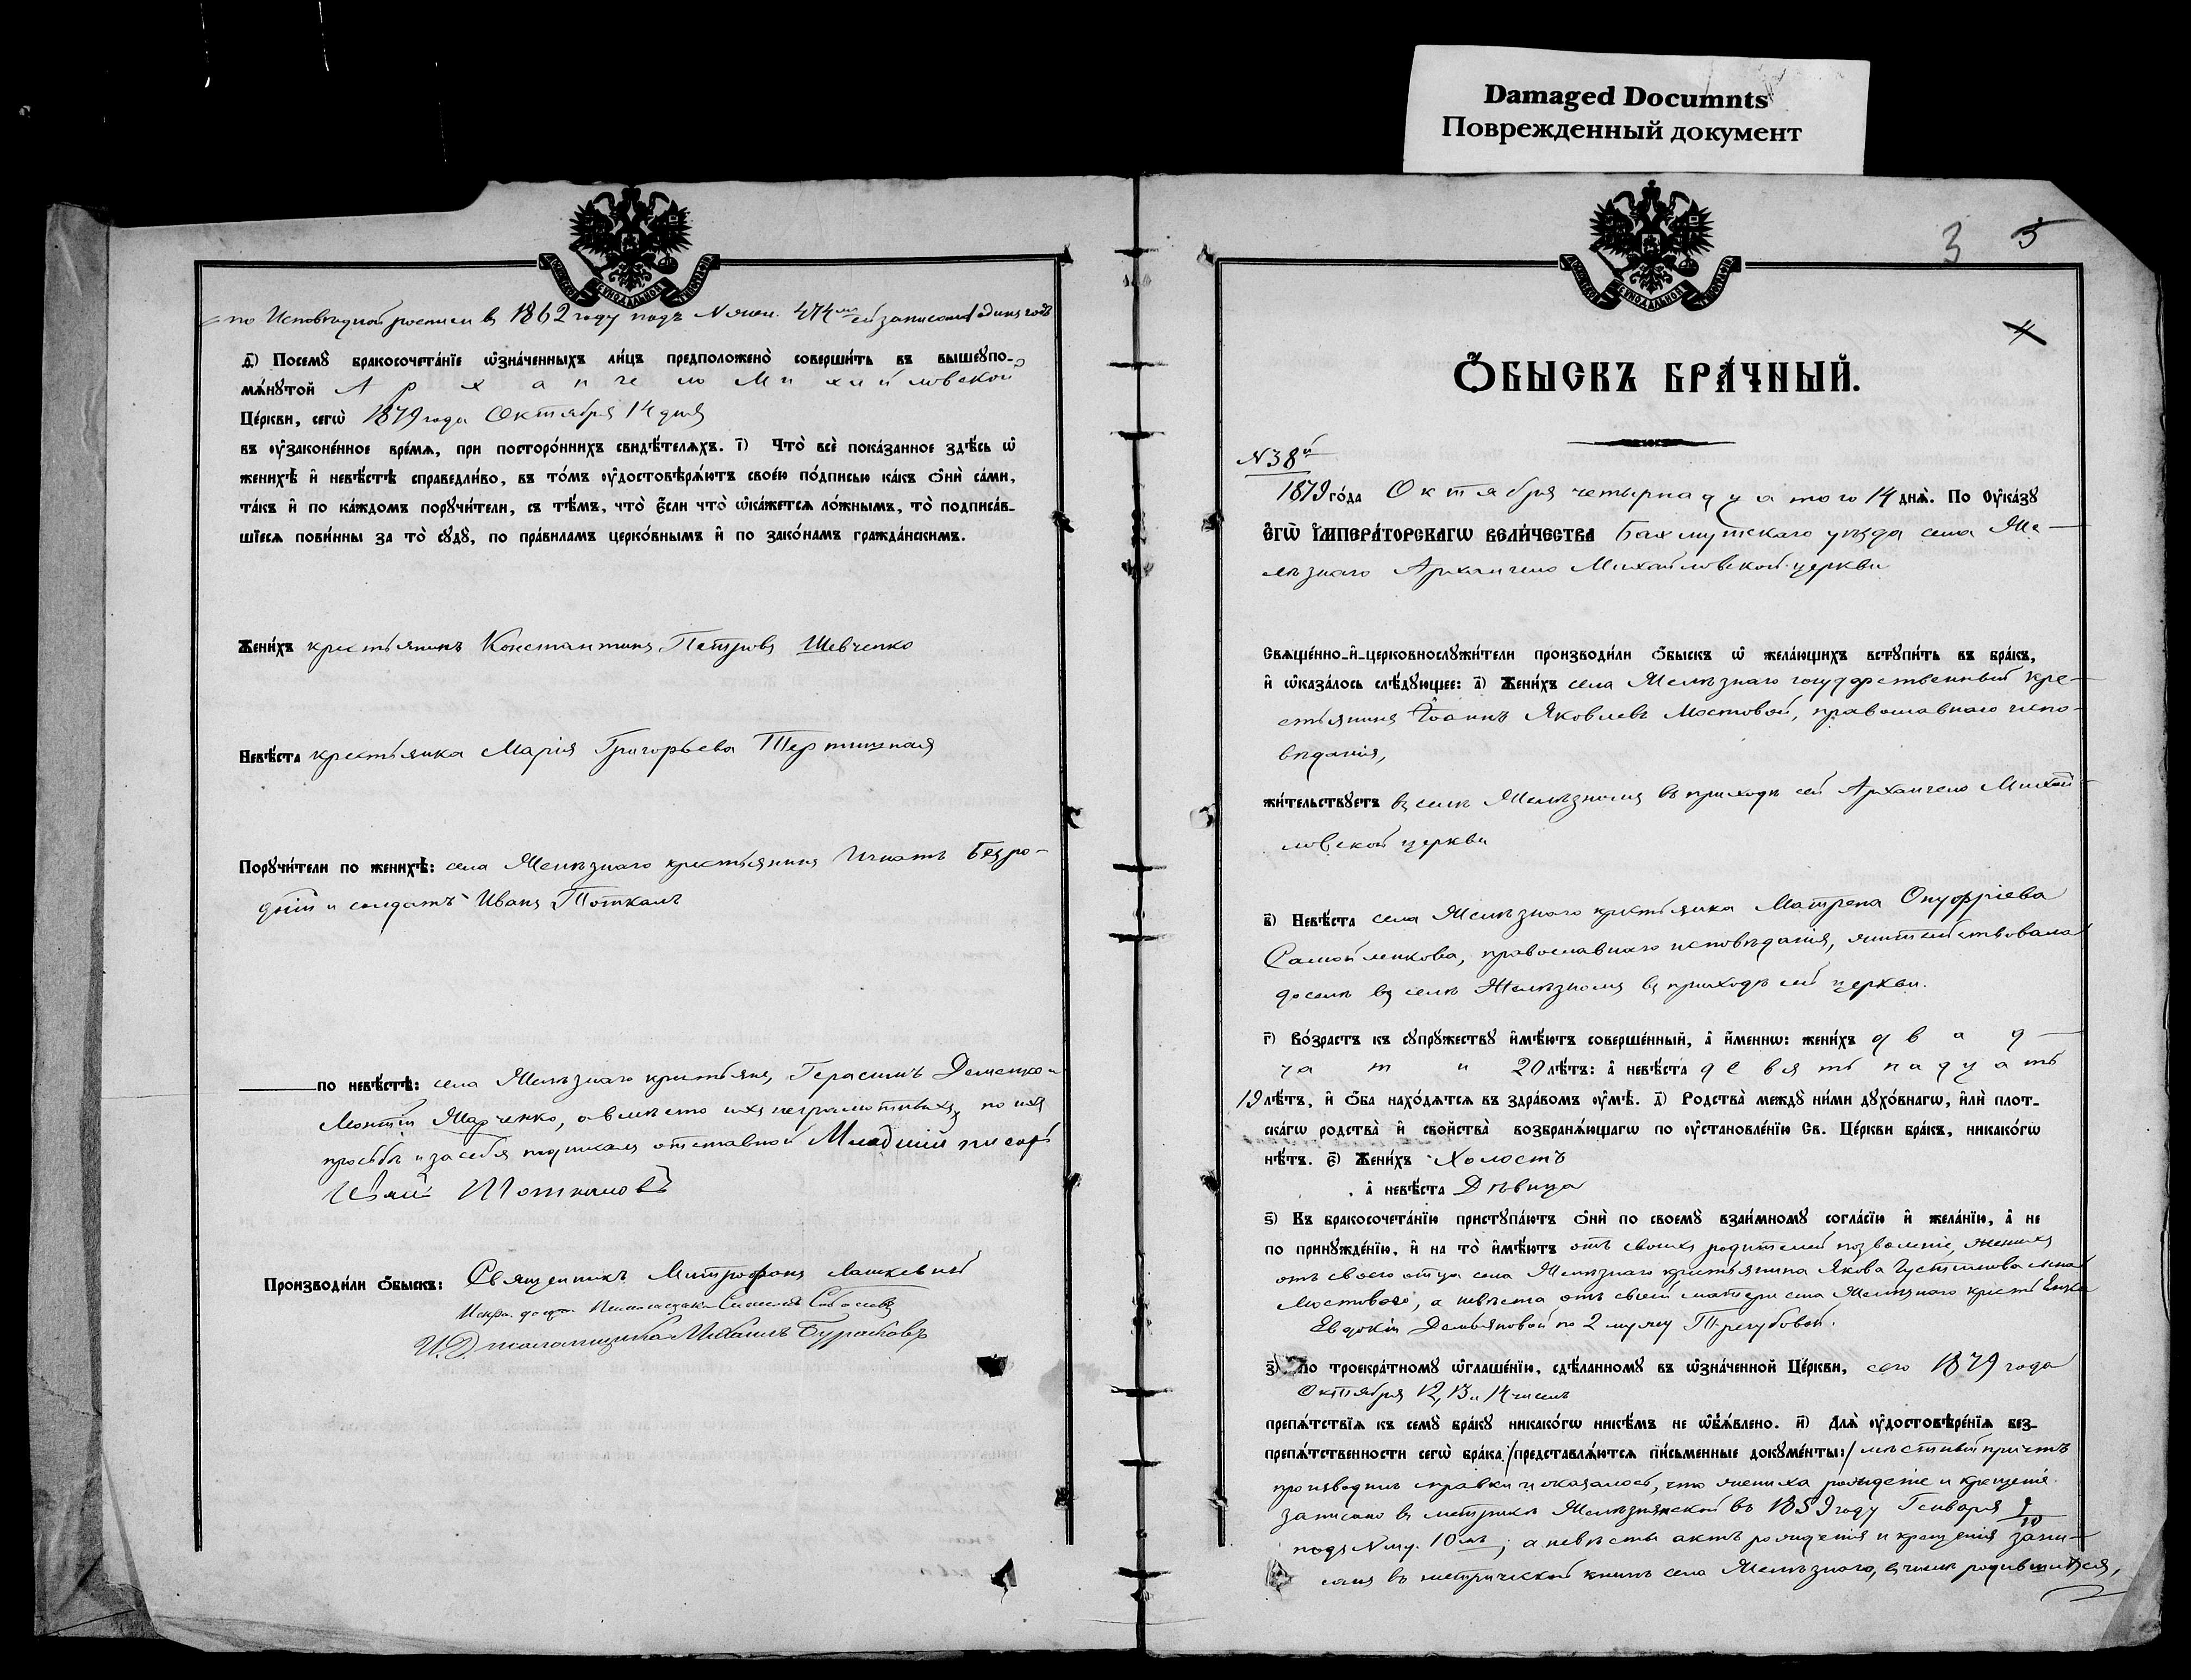 Damaged Documnts
Поврежденный документ
по Исповѣдной росписи въ 1862 году подъ N жен. 474мъ ей записанъ одинъ годъ
д҃і) Посемꙋ бракосочета́нїе ѡ҆зна́ченныхъ ли́цъ предположено̀ соверши́ть въ вышеꙋпо-
мѧ́нꙋтой Архангело Михайловской
Це́ркви, сегѡ̀ 1879 года Октября 14 дня
въ ᲂу҆законе́нное вре́мѧ, при посторо́ннихъ свидѣ́телѧхъ. і҃) Что̀ всѐ пока́занное здѣ́сь ѡ҆
женихѣ̀ и҆ невѣ́стѣ справедли́во, въ то́мъ ᲂу҆достовѣрѧ́ютъ свое́ю по́дписью ка́къ ѻ҆нѝ са́ми,
та́къ и҆ по ка́ждомъ порꙋчи́тели, съ тѣ́мъ, что̀ є҆́сли что̀ ѡ҆ка́жетсѧ ло́жнымъ, то̀ подписа́в-
шїесѧ пови́нны за то̀ сꙋдꙋ̀, по пра́виламъ церко́внымъ и҆ по зако́намъ гражда́нскимъ.
Жени́хъ крестьянинъ Константинъ Петровъ Шевченко
Невѣ́ста крестьянка Марія Григорьева Тертишная
Порꙋчи́тели по женихѣ̀: села Желѣзнаго крестьянинъ Игнатъ Безро-
дній и солдатъ Иванъ Поткалъ
по невѣ́стѣ: села Желѣзнаго крестьяне, Герасимъ
Марченко, а вмѣсто ихъ неграмотныхъ, по ихъ
просьбѣ и за себя подписалъ отставной Младшій писарь
Иванъ
Производи́ли ѻ҆́быскъ: Священникъ Митрофанъ Лашкевичъ
И.Д. пономаря Михаилъ
3 5
4
Ѻ҆́БЫСКЪ БРА́ЧНЫЙ.
N 38й
1879 го́да Октября четырнадцатого 14 днѧ̀. По Оу҆ка́зꙋ
ЕГѠ̀ І҆МПЕРА́ТОРСКАГѠ ВЕЛИ́ЧЕСТВА Бахмутскаго уѣзда села Же-
лѣзнаго Архангело Михайловской церкви
Свѧще́нно-и҆-церковнослꙋжи́тели производи́ли ѻ҆́быскъ ѡ҆ жела́ющихъ встꙋпи́ть въ бра́къ,
и҆ ѡ҆каза́лось слѣ́дꙋющее: а҃) Жени́хъ села Желѣзнаго государственный кре-
стьянинъ Іоаннъ Яковлевъ Мостовой, православнаго испо-
вѣданія,
жи́тельствꙋетъ въ селѣ Желѣзномъ въ приходѣ сей Архангело Михай-
ловской церкви
в҃) Невѣ́ста села Желѣзнаго крестьянка Матрена Онуфріева
Самойленкова, православнаго исповѣданія, жительствовала
доселѣ въ селѣ Желѣзномъ въ приходѣ сей церкви.
г҃) Во́зрастъ къ сꙋпрꙋ́жествꙋ и҆мѣ́ютъ соверше́нный, а҆ и҆́меннѡ: жени́хъ двад-
цати 20 лѣ́тъ: а҆ невѣ́ста девятьнадцать
19 лѣ́тъ, и҆ ѻ҆́ба нахо́дѧтсѧ въ здра́вомъ ᲂу҆мѣ̀. д҃) Родства̀ междꙋ ни́ми дꙋхо́внагѡ, и҆лѝ плот-
ска́гѡ родства̀ и҆ сво́йства̀ возбранѧ́ющагѡ по ᲂу҆становле́нїю Св. Це́ркви бра́къ, никако́гѡ
нѣ́тъ. є҃) Жени́хъ Холостъ
, а҆ невѣ́ста Дѣвица
ѕ҃) Въ бракосочета́нїю пристꙋпа́ютъ ѻ҆нѝ по своемꙋ̀ взаи́мномꙋ согла́сїю и҆ жела́нїю, а҆ не
по принꙋжде́нїю, и҆ на то̀ и҆мѣ́ютъ отъ своихъ родителей позволеніе, женихъ
отъ своего отца села Желѣзнаго крестьянина Якова Густинова сына
Мостового, а невѣста отъ своей матери села Желѣзнаго крестьянки
Евдокіи Демьяновой по 2 мужу Трегубовой.
з҃) По троекра́тномꙋ ѡ҆глаше́нїю, сдѣ́ланномꙋ въ ѡ҆зна́ченной Це́ркви, сего 1879 года
Октября 12, 13 и 14 чиселъ
препѧ́тствїѧ къ семꙋ̀ бра́кꙋ никако́гѡ никѣ́мъ не ѡ҆б̾ѧ́влено. и҃) Длѧ̀ ᲂу҆достовѣре́нїѧ без-
препѧ́тственности сегѡ̀ бра́ка /представлѧ́ютсѧ пи́сьменные докꙋме́нты:/ мѣстный причтъ
производилъ справки и оказалось, что жениха рожденіе и крещеніе
записано въ метрикѣ Желѣзнянской въ 1859 году Генваря 9/10
подъ N муж. 10мъ; а невѣсты актъ рожденія и крещенія запи-
санъ въ метрической книгѣ села Желѣзнаго, въ числѣ родившихся,